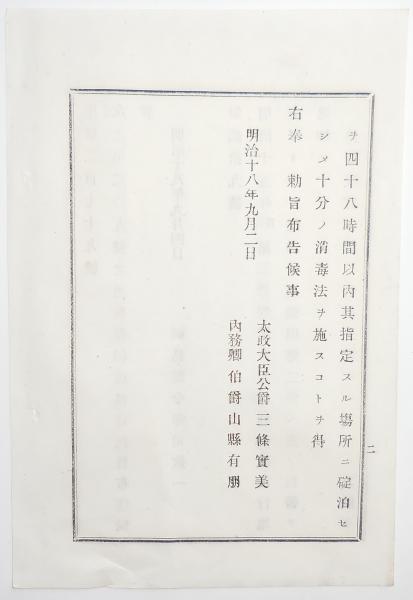 ヲ四十八時間以內其指定スル場所ニ碇泊セ
シメ十分ノ消毒法ヲ施スコトヲ得
右奉　勅旨布告候事
明治十八年九月二日
太政大臣公爵三條實美
內務卿伯爵山縣有朋
二